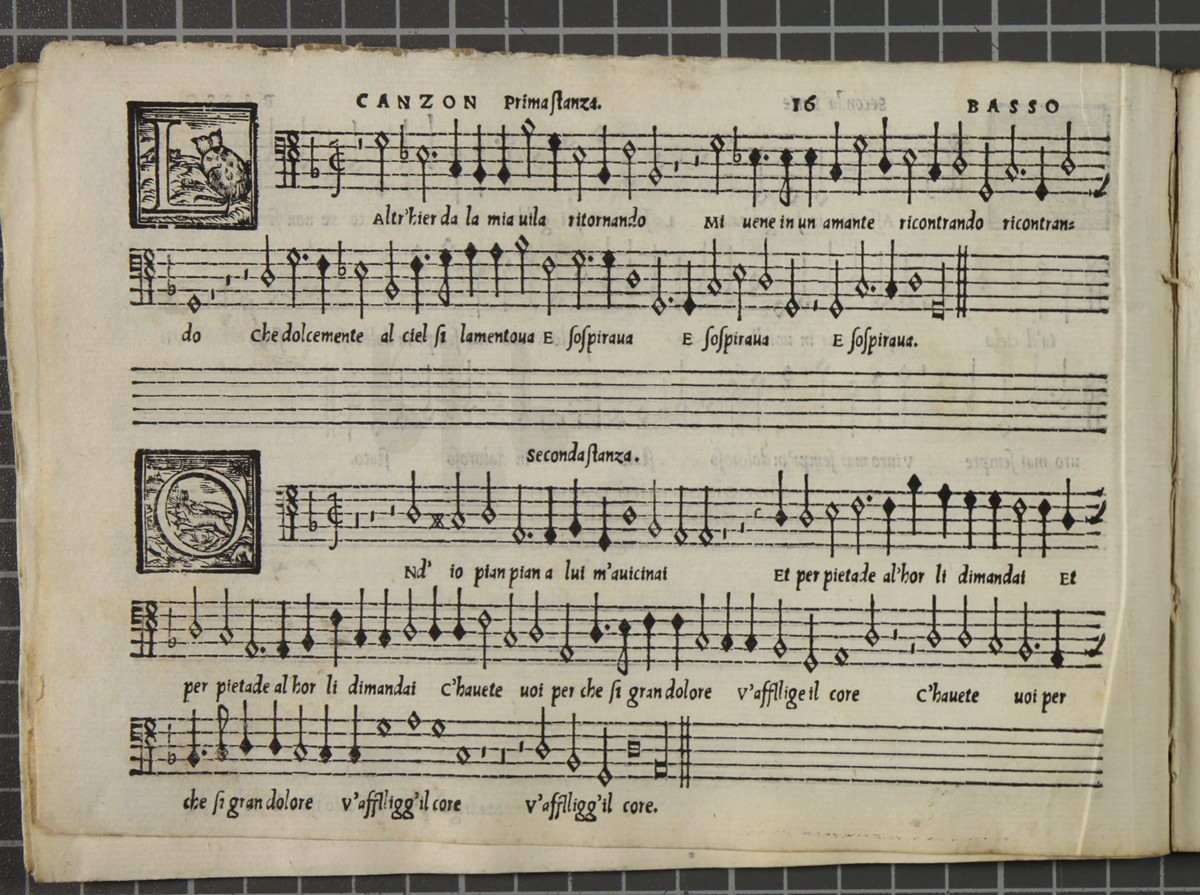 CANZON Prima stanza. 16 BASSO
L Altr'hier da la mia uila ritornando Mi uene in un amante ricontrando ricontran=
do Che dolcemente al ciel si lamentoua E sospiraua E sospiraua E sospiraua.
Seconda stanza.
O Nd' io pian pian a lui m'auicinai Et per pietade al'hor li dimandai Et
per pietade al hor li dimandai C'hauete uoi per che si gran dolore V'affllige il core C'hauete uoi per
che si gran dolore V'afflligg'il core V'affllligg'il core.